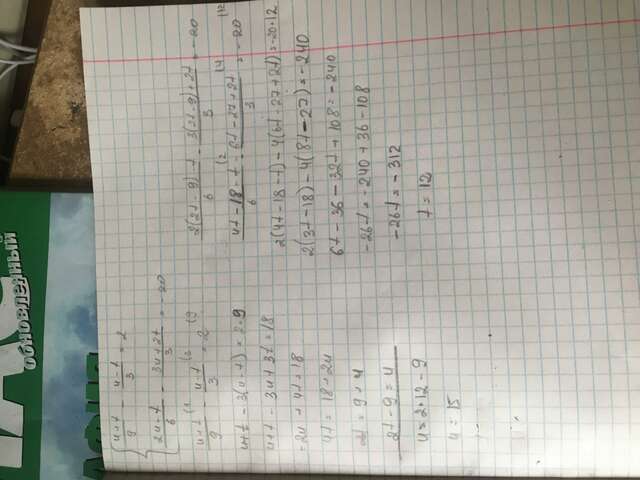 обновленный
{ (u+t)/9 - (u-t)/3 = 2
{ (2u-t)/6 - (3u+2t)/3 = -20
(u+t)/9 - (u-t)/3 = 2
u+t - 3(u-t) = 2·9
u+t - 3u+3t = 18
-2u + 4t = 18
4t = 18+2u
2t = 9+u
2t - 9 = u
u = 2·12 - 9
u = 15
(2(2t-9)-t)/6 - (3(2t-9)+2t)/3 = -20
(4t-18-t)/6 - (6t-27+2t)/3 = -20
2(4t-18-t) - 4(6t-27+2t) = -20·12
2(3t-18) - 4(8t-27) = -240
6t - 36 - 32t + 108 = -240
-26t = -240 + 36 - 108
-26t = -312
t = 12